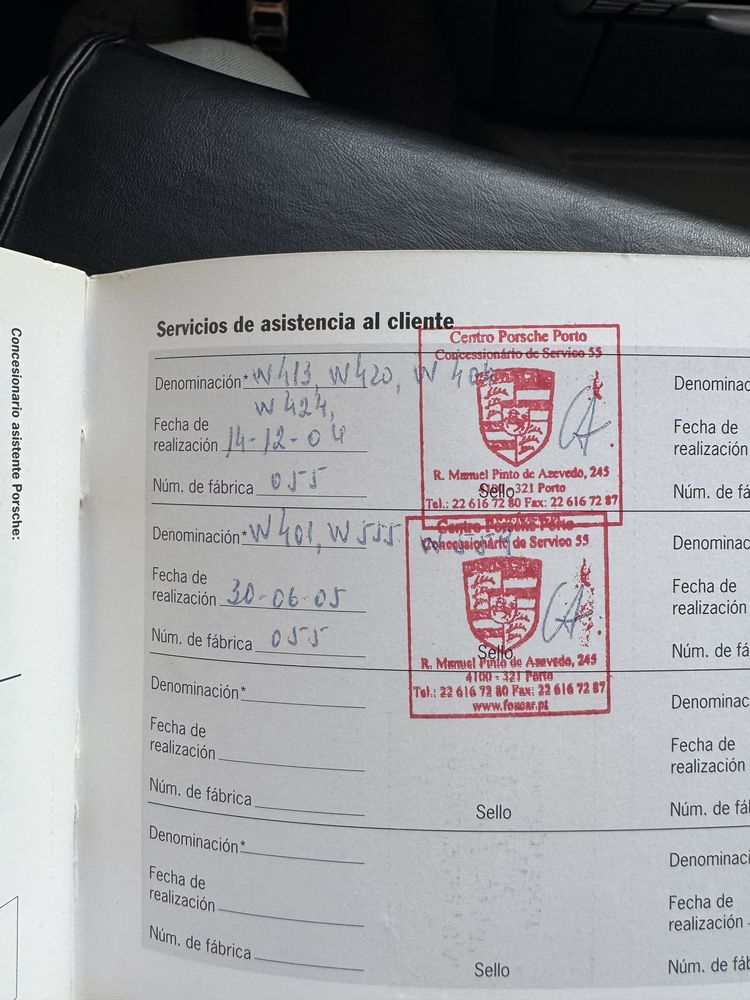 Concesionario asistente Porsche:
Servicios de asistencia al cliente
Denominación* W413, W420, W 404
W424,
Fecha de
realización 14-12-04
Núm. de fábrica 055
Centro Porsche Porto
Concessionário de Servico 55
R. Manuel Pinto de Azevedo, 245
321 Porto
Sello
Tel.: 22 616 72 80 Fax: 22 616 72 87
Denominación* W401, W555
Fecha de
realización 30-06-05
Núm. de fábrica 055
Centro Porsche Porto
Concessionário de Servico 55
Sello
R. Manuel Pinto de Azevedo, 245
4100 - 321 Porto
Tel.: 22 616 72 80 Fax: 22 616 72 87
Denominación*
Fecha de
realización
Núm. de fábrica
Sello
Denominación*
Fecha de
realización
Núm. de fábrica
Sello
Denominac
Fecha de
realización
Núm. de fá
Denominac
Fecha de
realización
Núm. de fá
Denominac
Fecha de
realización
Núm. de fá
Denominaci
Fecha de
realización
Núm. de fáb